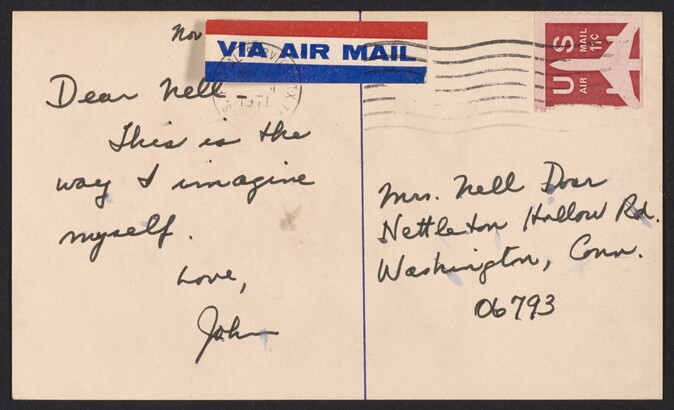 Nov
VIA AIR MAIL
1971
US AIR MAIL 11c
Dear Nell -
This is the
way I imagine
myself.
Love,
John
Mrs. Nell Dorr
Nettleton Hollow Rd.
Washington, Conn.
06793